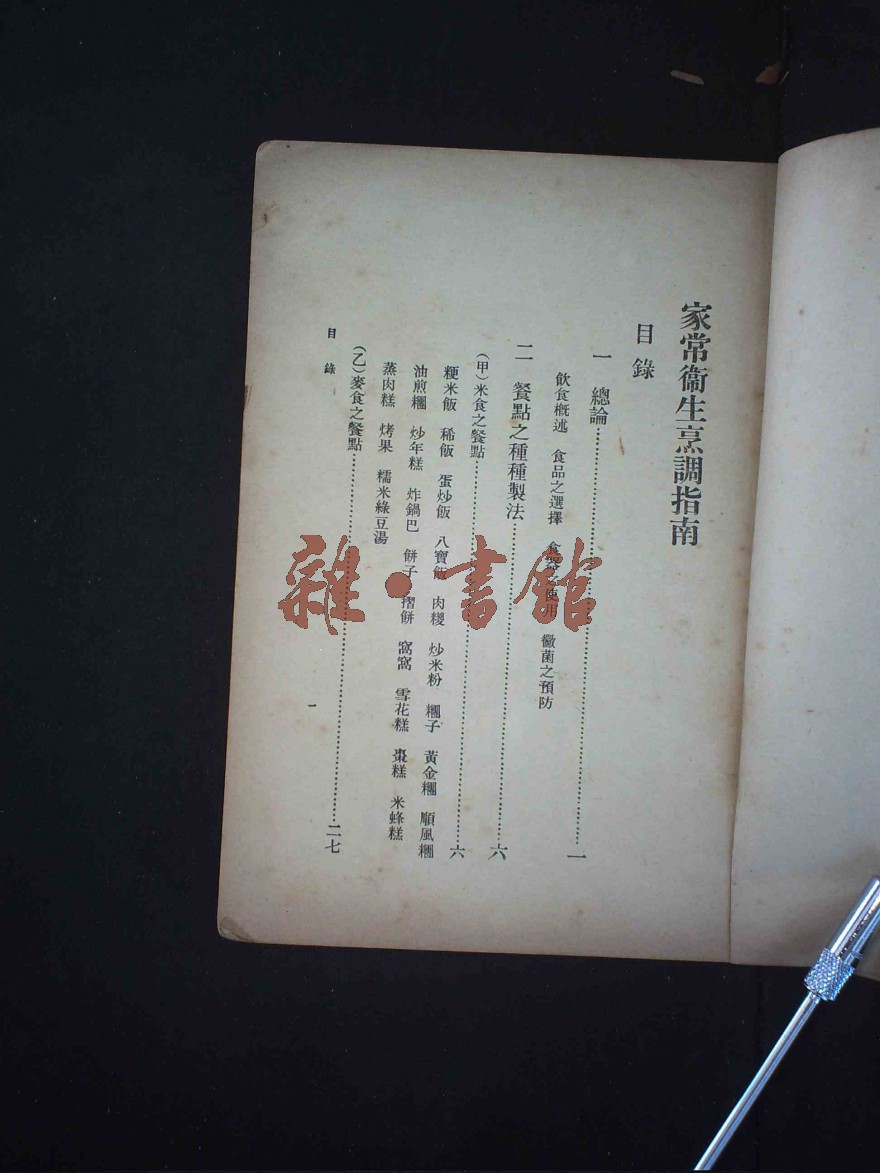 家常衞生烹調指南
目錄
一 總論……一
飲食概述 食品之選擇 食器之使用 黴菌之預防
二 餐點之種種製法……六
(甲)米食之餐點……六
粳米飯 稀飯 蛋炒飯 八寶飯 肉糉 炒米粉 糰子 黃金糰 順風糰
油煎糰 炒年糕 炸鍋巴 餅子 摺餅 窩窩 雪花糕 棗糕 米蜂糕
蒸肉糕 烤果 糯米綠豆湯
(乙)麥食之餐點……二七
目錄
一
雜·書館